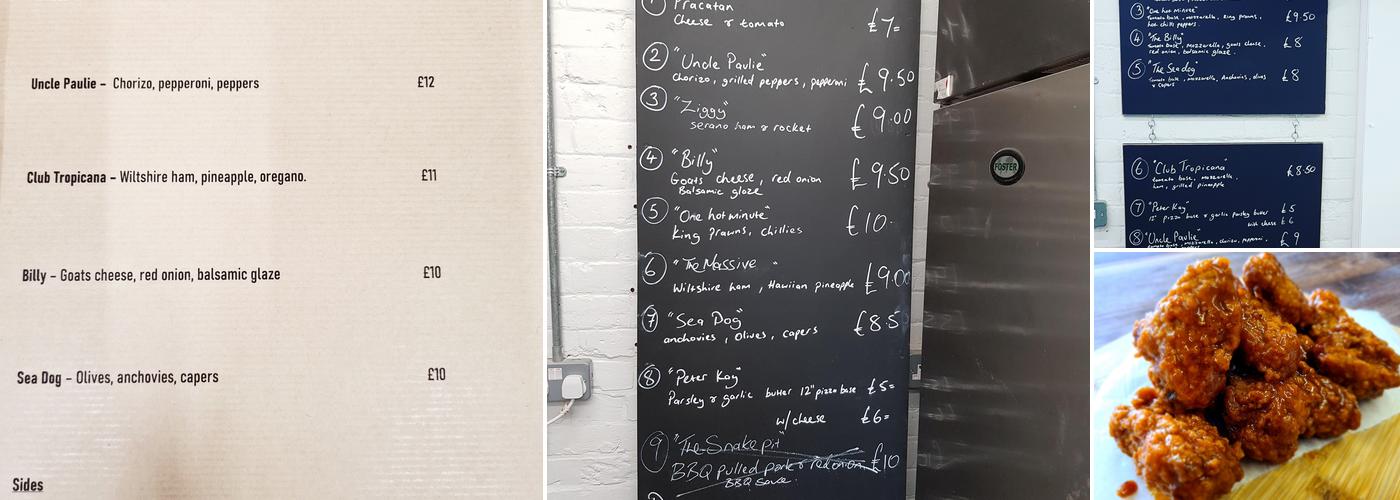 Uncle Paulie – Chorizo, pepperoni, peppers £12
Club Tropicana – Wiltshire ham, pineapple, oregano. £11
Billy – Goats cheese, red onion, balsamic glaze £10
Sea Dog – Olives, anchovies, capers £10
Sides
Pracatan
Cheese & tomato £7=
2 "Uncle Paulie"
Chorizo, grilled peppers, pepperoni £9.50
3 "Ziggy"
serano ham & rocket £9.00
4 "Billy"
Goats cheese, red onion £9.50
Balsamic glaze
5 "One hot minute"
King Prawns, chillies £10.
6 "The Massive"
Wiltshire ham, Hawiian pineapple £9.00
7 "Sea Dog"
anchovies, Olives, capers £8.5
8 "Peter Kay"
Parsley & garlic butter 12" pizza base £5=
w/cheese £6=
9 "The Snake pit"
BBQ pulled pork & red onion £10
BBQ sauce.
FOSTER
3 "One hot minute" £9.50
tomato base, mozzarella, king prawns,
hot chilli peppers.
4 "The Billy" £8
tomato base, mozzarella, goats cheese,
red onion, balsamic glaze.
5 "The Sea dog" £8
tomato base, mozzarella, Anchovies, olives
& capers
6 "Club Tropicana" £8.50
tomato base, mozzarella,
ham, grilled pineapple
7 "Peter Kay" £5
12" pizza base & garlic parsley butter
with cheese £6
8 "Uncle Paulie" £9
mozzarella, chorizo, pepperoni,